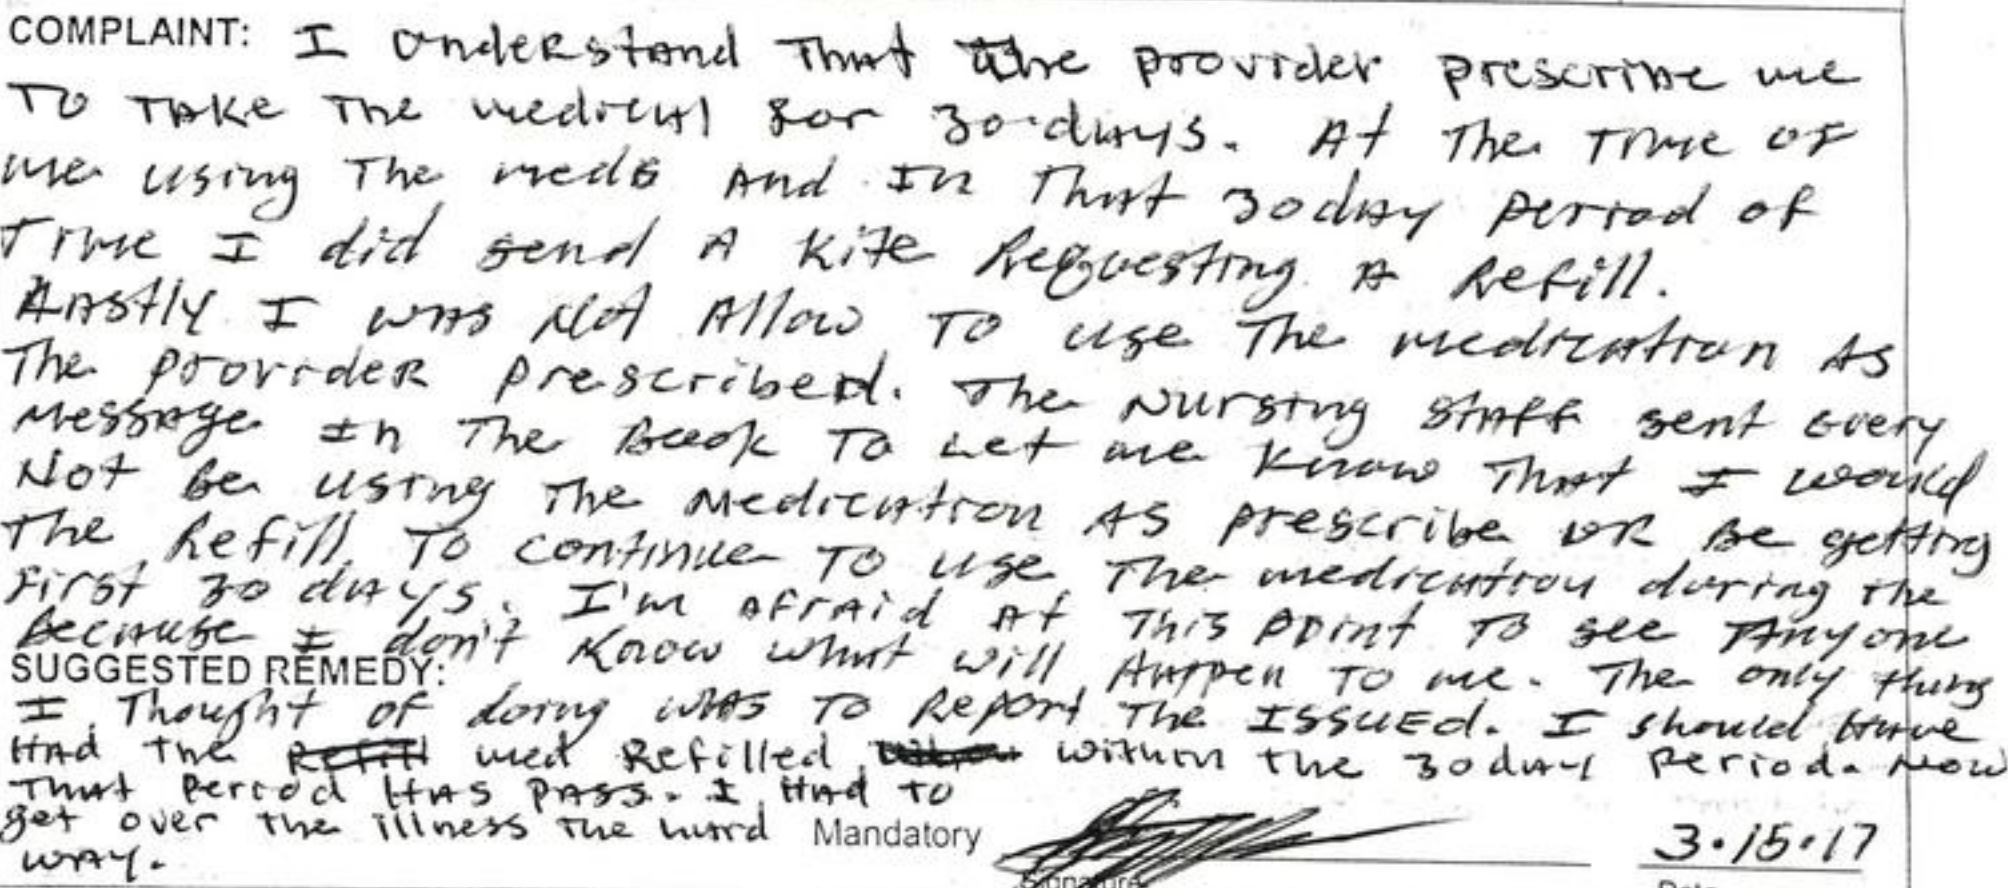 COMPLAINT: I understand That the provider prescribe me
To Take The medical for 30 days. At The Time of
me using The meds And In That 30 day period of
Time I did send A Kite Requesting A Refill.
Lastly I was Not Allow To use The medication As
The provider prescribed. The Nursing staff sent every
Message In The Book To Let me Know That I would
Not Be using The Medication As prescribe or Be getting
The Refill To continue To use The medication during the
First 30 days. I'm Afraid At This point To see Anyone
Because I don't Know what will Happen To me. The only thing
SUGGESTED REMEDY:
I Thought of doing was To Report The ISSUED. I should Have
Had The med Refilled within the 30 day Period. Now
That Period Has Pass. I Had to
get over the illness the hard Mandatory
way.
Signature 3.15.17
Date